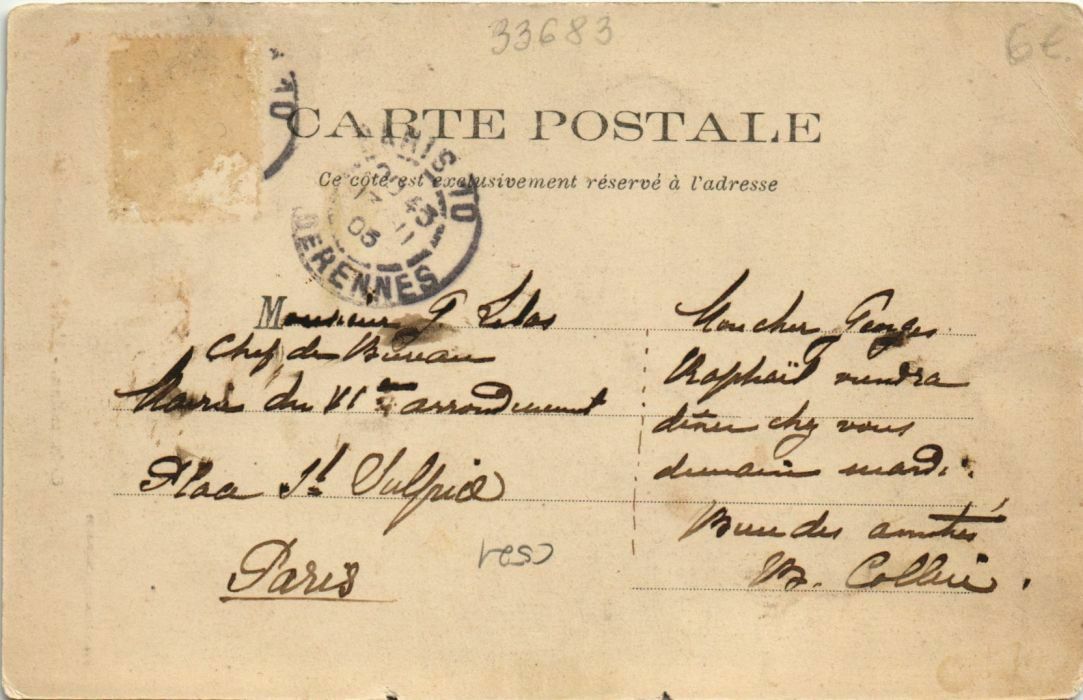 33683
6€
CARTE POSTALE
Ce côté est exclusivement réservé à l'adresse
PARIS
20 43
05
DERENNES
Monsieur G
Chef de Bureau
Mairie du VIème arrondissement
Place St Sulpice
Paris
Mon cher Georges
Raphaël viendra
dîner chez vous
demain mardi.
Bien des amitiés
B.